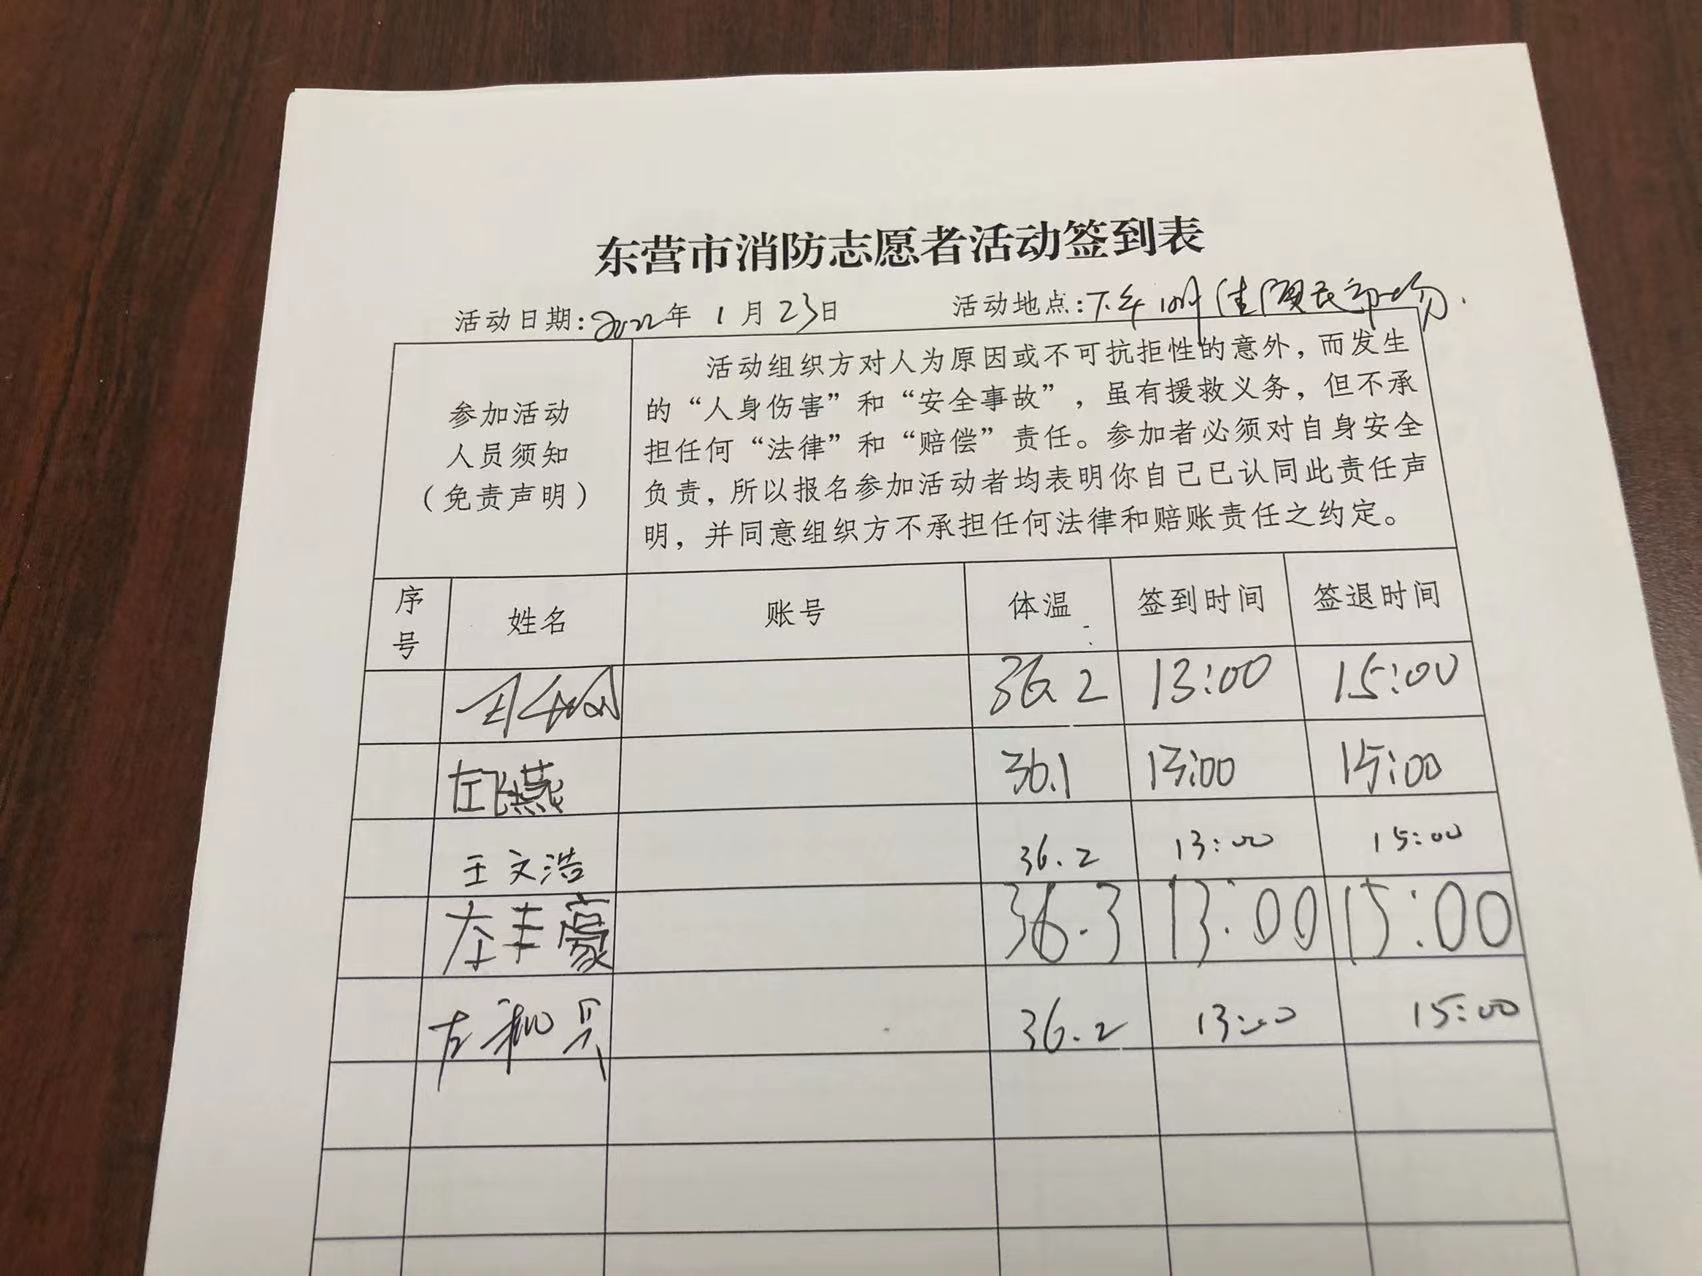 东营市消防志愿者活动签到表
活动日期:2022年 1月23日 活动地点:
参加活动
人员须知
(免责声明)
活动组织方对人为原因或不可抗拒性的意外，而发生
的“人身伤害”和“安全事故”，虽有援救义务，但不承
担任何“法律”和“赔偿”责任。参加者必须对自身安全
负责，所以报名参加活动者均表明你自己已认同此责任声
明，并同意组织方不承担任何法律和赔账责任之约定。
序号 姓名 账号 体温 签到时间 签退时间
36.2 13:00 15:00
左飞燕 36.1 13:00 15:00
王文浩 36.2 13:00 15:00
左丰豪 36.3 13:00 15:00
左 36.2 13:00 15:00